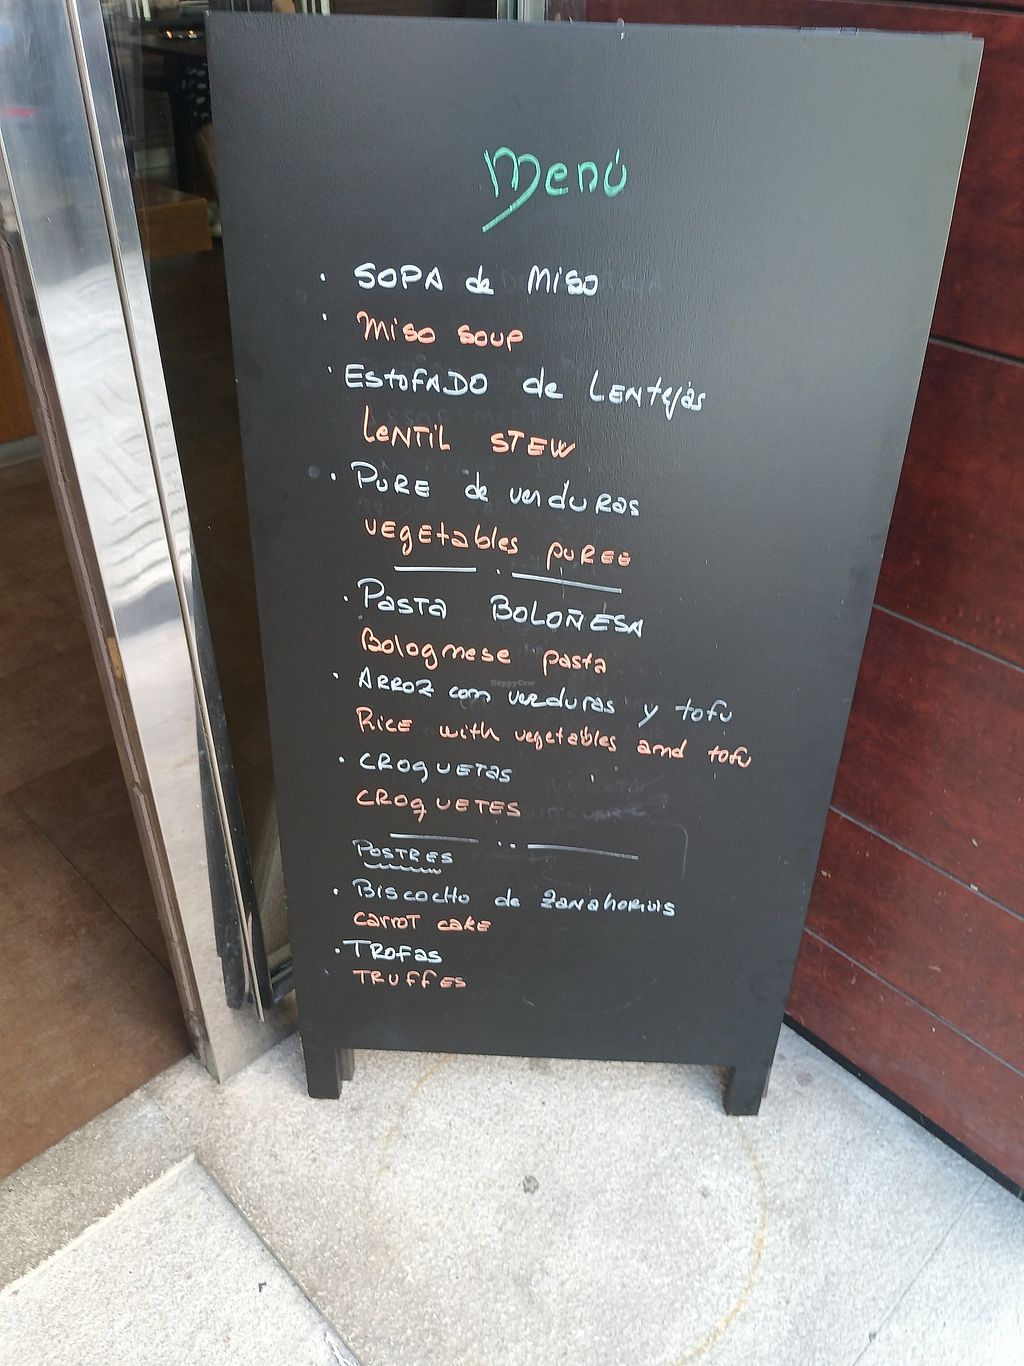 Menú
SOPA de MISO
Miso soup
ESTOFADO de LENTEjas
LENTIL STEW
PURE de verduRas
VEgEtables puREE
PasTa BOLOÑESA
Bologmese pasta
ARROZ com verduras y tofu
RICE with vegetables amd tofu
CROqUETas
CROqUETES
POSTRES
BISCOCHO de ZaNahorias
carroT cake
TROfas
TRUffES
HappyCow